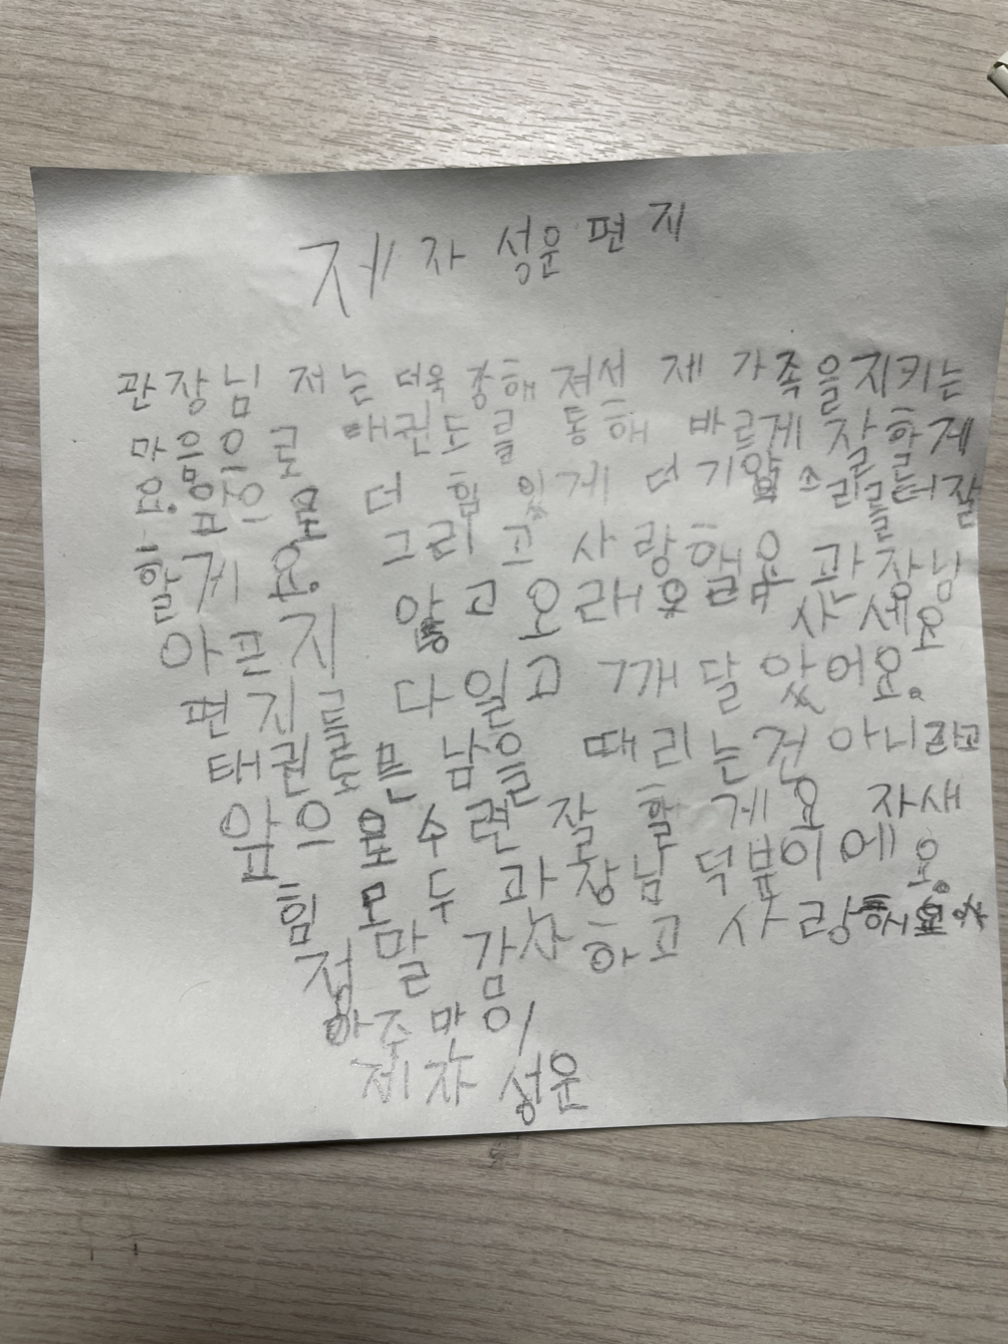 제자 성운 편지
관장님 저는 더욱 강해져서 제 가족을 지키는
마음으로 태권도를 통해 바르게 잘할게
요. 앞으로 더 힘있게 더 기압소리를 더 잘
할게요. 그리고 사랑해요 관장님
아프지 않고 오래오래
사세요
편지를 다 일고 깨달았어요.
태권도는 남을 때리는건 아니라고
앞으로 수련 잘할게요 자새
힘 모두 관장님 덕분이에요.
정말 감사하고 사랑해요
아주 많이
제자 성운